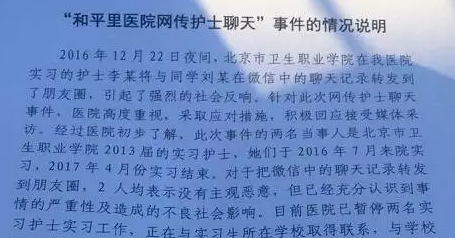 “和平里医院网传护士聊天”事件的情况说明
2016 年 12 月 22 日夜间，北京市卫生职业学院在我医院
实习的护士李某将与同学刘某在微信中的聊天记录转发到
了朋友圈，引起了强烈的社会反响。针对此次网传护士聊天
事件，医院高度重视，采取应对措施，积极回应接受媒体采
访。经过医院初步了解，此次事件的两名当事人是北京市卫
生职业学院 2013 届的实习护士，她们于 2016 年 7 月来院实
习，2017 年 4 月份实习结束。对于把微信中的聊天记录转发
到朋友圈，2 人均表示没有主观恶意，但已经充分认识到事
情的严重性及造成的不良社会影响。目前医院已暂停两名实
习护士实习工作，正在与实习生所在学校取得联系，与学校